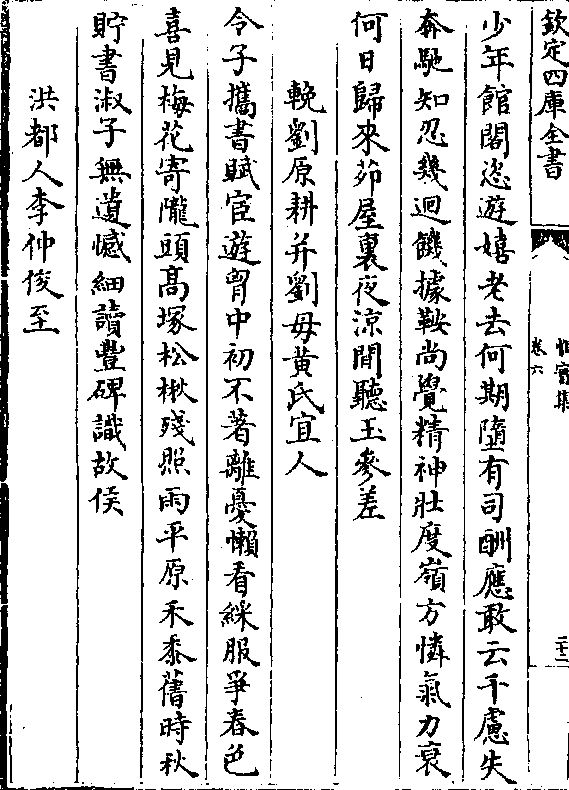 欽定四庫全書
卷六
二十二
少年館閣恣遊嬉老去何期墮有司酬應敢云千慮失
奔馳知忍幾迴饑據鞍尚覺精神壯度嶺方憐氣力衰
何日歸來茆屋裏夜涼閒聽玉參差
輓劉原耕并劉母黃氏宜人
令子攜書賦宦遊胷中初不著離憂懶看綵服爭春色
喜見梅花寄隴頭髙塚松楸殘照雨平原禾黍舊時秋
貯書淑子無遺憾細讀豐碑識故侯
洪都人李仲俊至